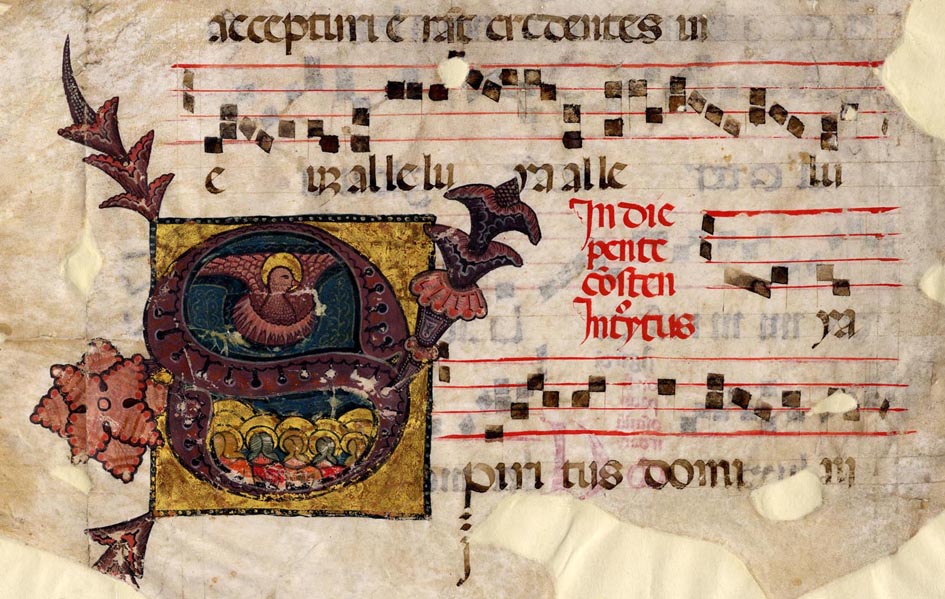 accepturi e rāt credentes in
e uʒ alle lu ya alle lu
In die
pente
cōsten
Intͦytus
ya
Spiri tus domi ni